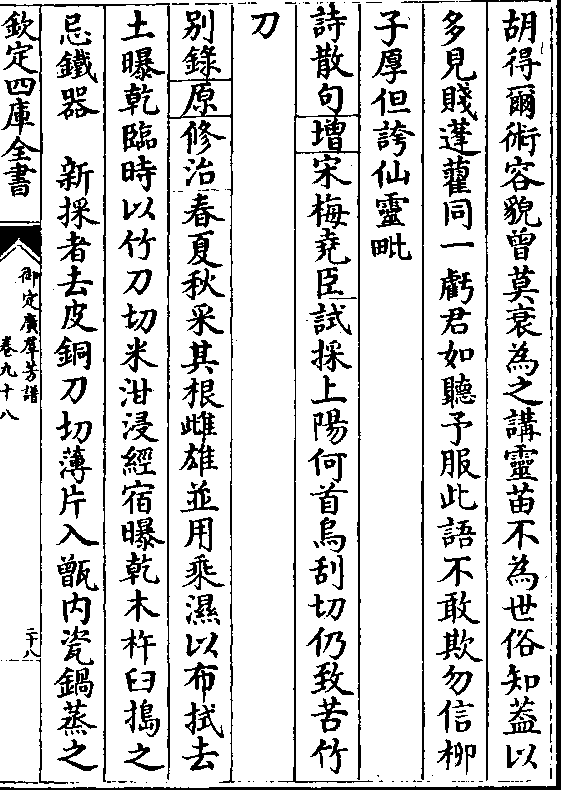 胡得爾術容貌曾莫衰為之講靈苗不為世俗知葢以
多見賤蓬藋同一虧君如聽予服此語不敢欺勿信栁
子厚但誇仙靈毗
詩散句增宋梅堯臣試採上陽何首烏刮切仍致苦竹
刀
别錄原修治春夏秋采其根雌雄並用乘濕以布拭去
土曝乾臨時以竹刀切米泔浸經宿曝乾木杵臼搗之
忌鐵器　新採者去皮銅刀切薄片入甑内瓷鍋蒸之
欽定四庫全書
御定廣羣芳譜
卷九十八
二十八